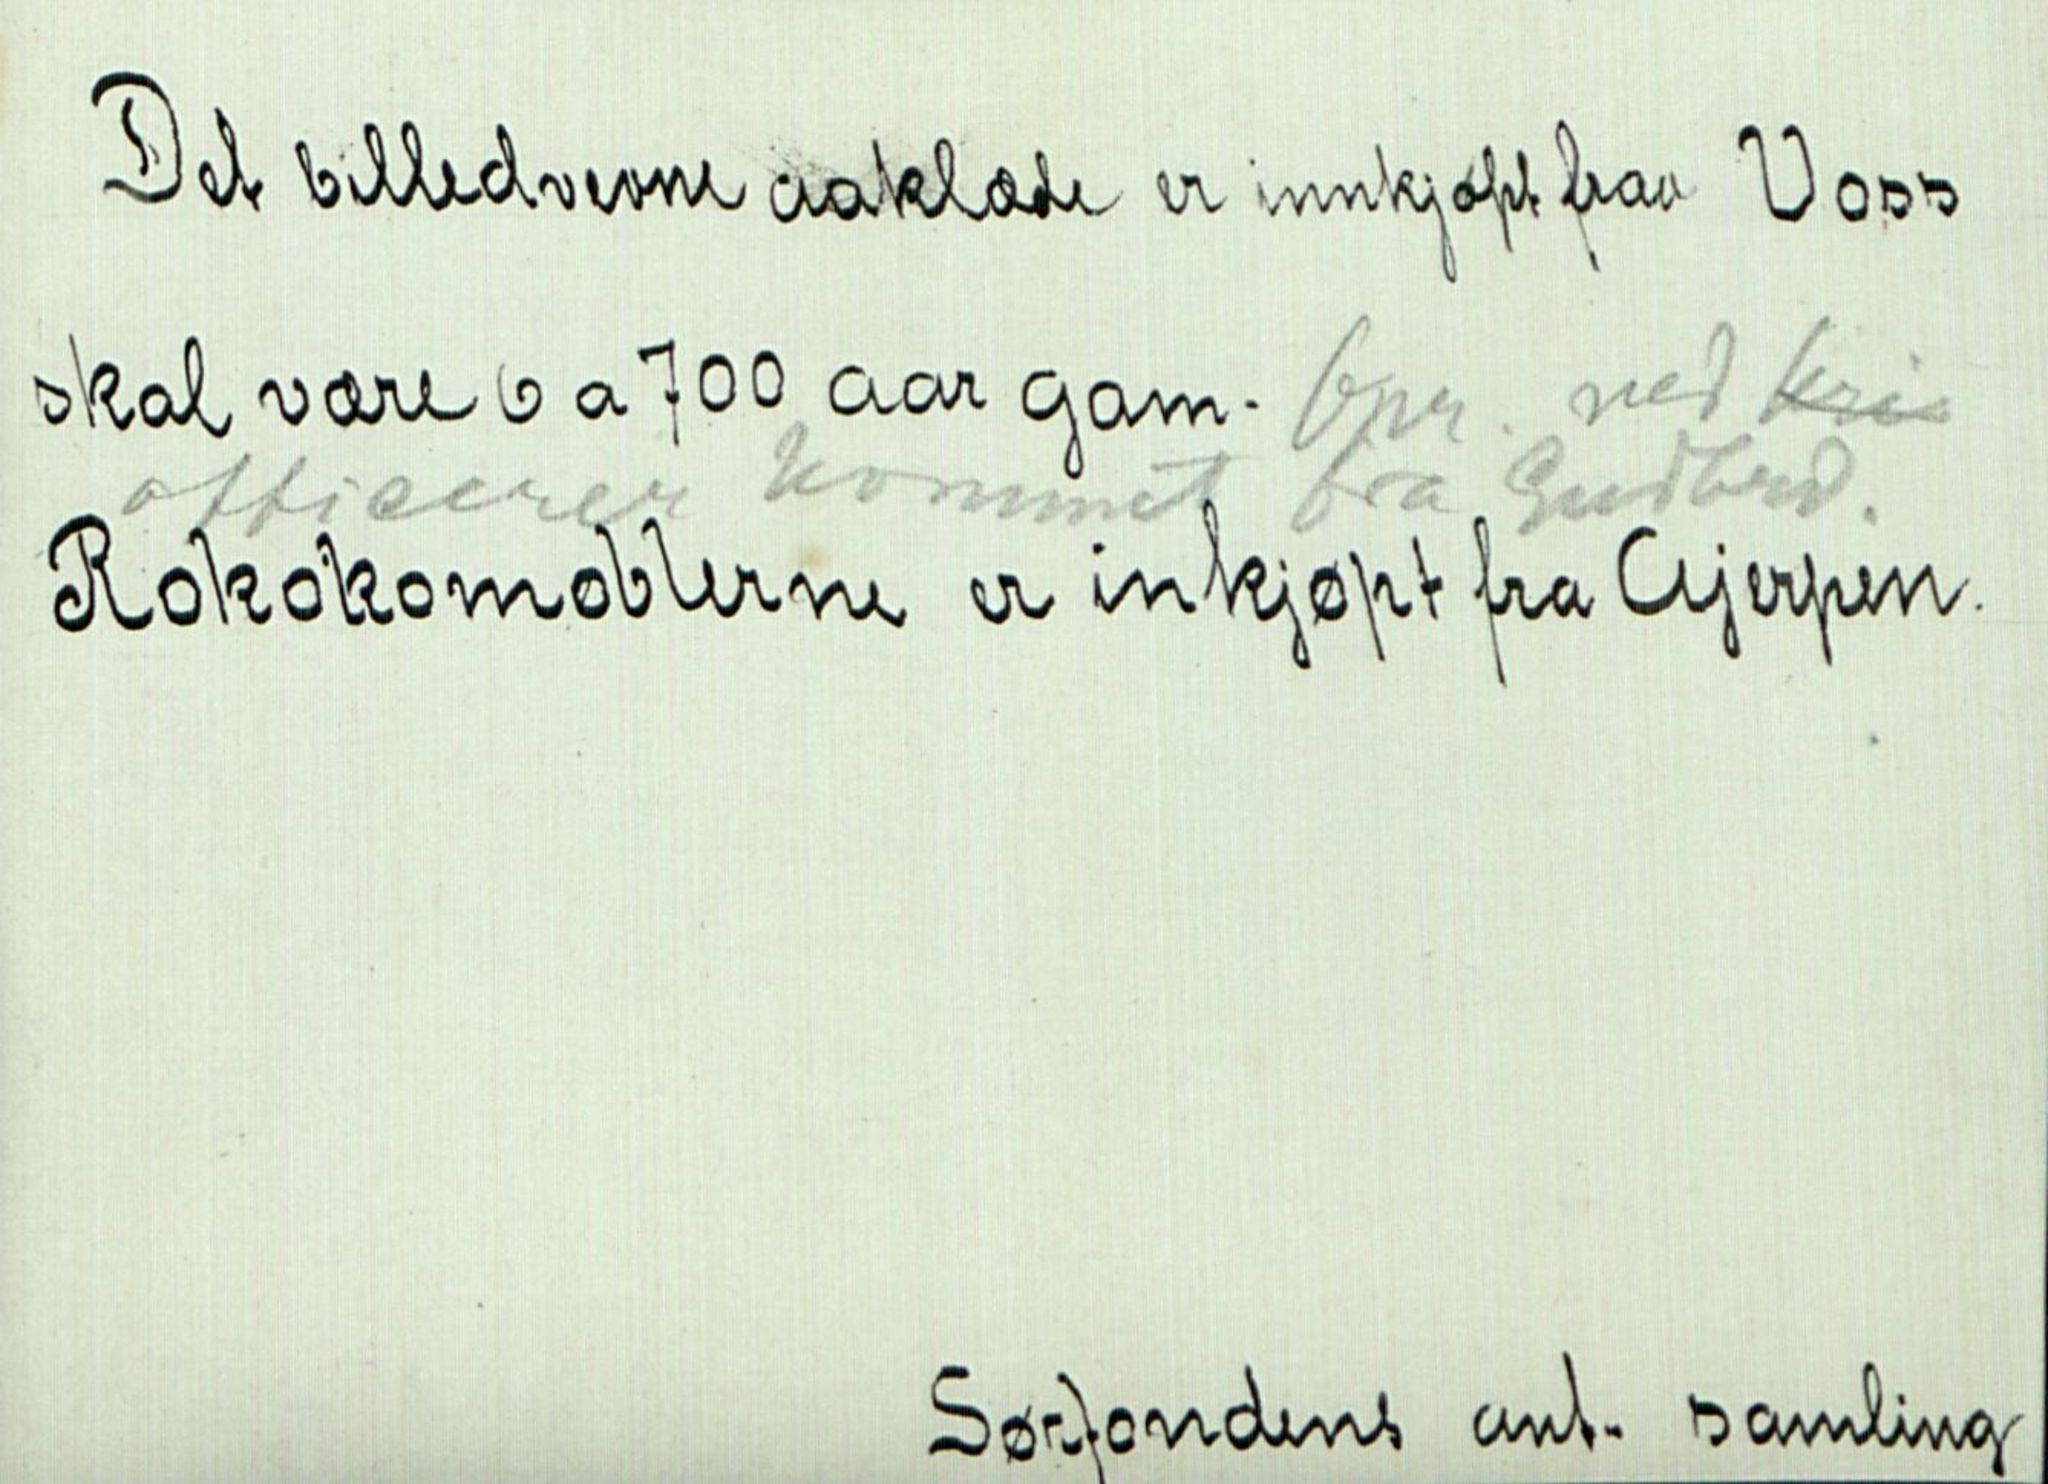 Det billedvevne aaklæde er innkjøpt fraa Voss
skal være 6 a 700 aar gam. Opr. ved kri
officerer kommet fra Gudbrd.
Rokokomøblerne er inkjøpt fra Gjerpen.
Sørjondens ant. samling